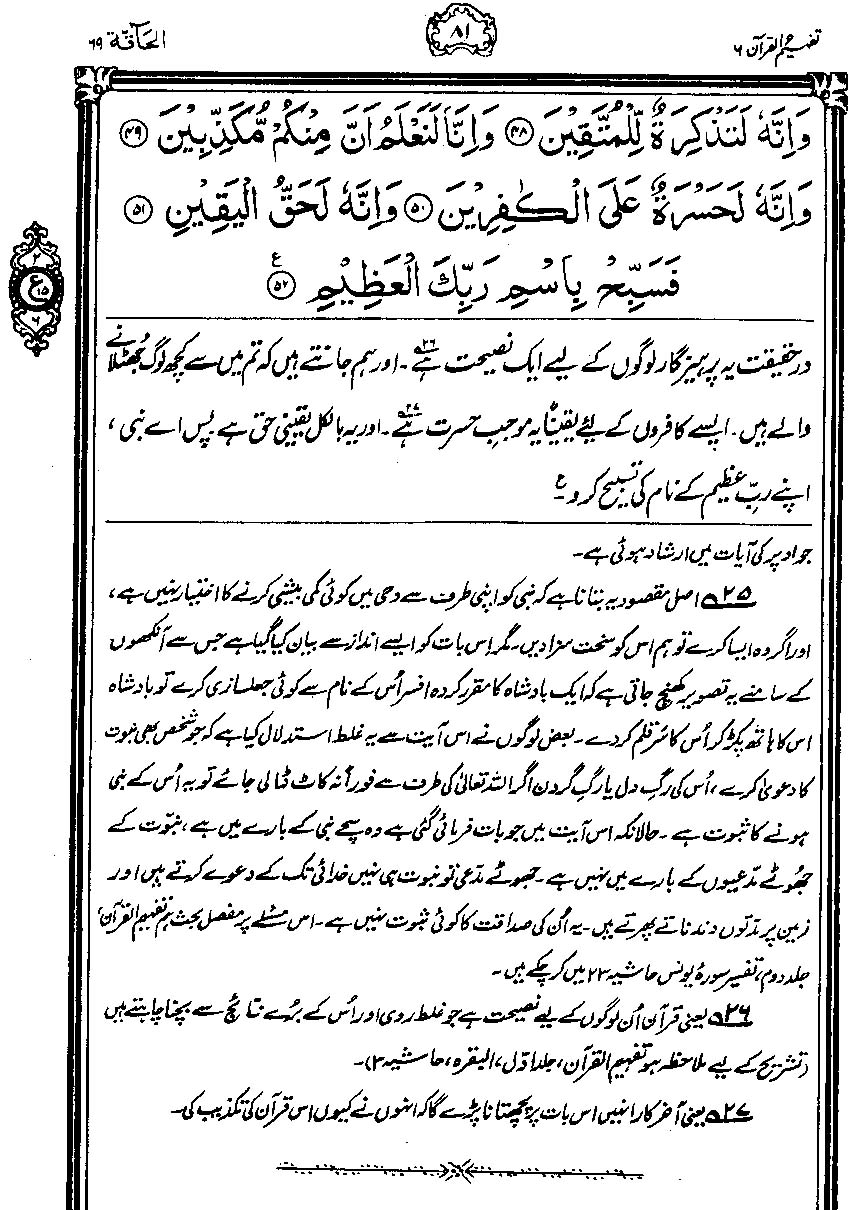 تفہیم القرآن ۶
۸۱
الحآقۃ ۶۹
وَاِنَّهٗ لَتَذْكِرَةٌ لِّلْمُتَّقِيْنَ ۴۸ وَاِنَّا لَنَعْلَمُ اَنَّ مِنْكُمْ مُّكَذِّبِيْنَ ۴۹
وَاِنَّهٗ لَحَسْرَةٌ عَلَى الْكٰفِرِيْنَ ۵۰ وَاِنَّهٗ لَحَقُّ الْيَقِيْنِ ۵۱
فَسَبِّحْ بِاسْمِ رَبِّكَ الْعَظِيْمِ ۵۲ ع
۲
ع ۱۵
۶
درحقیقت یہ پرہیزگار لوگوں کے لیے ایک نصیحت ہے۲۶۔ اور ہم جانتے ہیں کہ تم میں سے کچھ لوگ جھٹلانے
والے ہیں۔ ایسے کافروں کے لئے یقیناً یہ موجبِ حسرت ہے۲۷۔ اور یہ بالکل یقینی حق ہے پس اے نبی،
اپنے ربِّ عظیم کے نام کی تسبیح کرو ع
جو اوپر کی آیات میں ارشاد ہوئی ہے۔
۲۵ اصل مقصود یہ بتانا ہے کہ نبی کو اپنی طرف سے وحی میں کوئی کمی بیشی کرنے کا اختیار نہیں ہے،
اور اگر وہ ایسا کرے تو ہم اس کو سخت سزا دیں۔ مگر اس بات کو ایسے انداز سے بیان کیا گیا ہے جس سے آنکھوں
کے سامنے یہ تصویر کھنچ جاتی ہے کہ ایک بادشاہ کا مقرر کردہ افسر اُس کے نام سے کوئی جعلسازی کرے تو بادشاہ
اس کا ہاتھ پکڑ کر اُس کا سر قلم کر دے۔ بعض لوگوں نے اس آیت سے یہ غلط استدلال کیا ہے کہ جو شخص بھی نبوت
کا دعویٰ کرے، اُس کی رگِ دل یا رگِ گردن اگر اللہ تعالیٰ کی طرف سے فوراً نہ کاٹ ڈالی جائے تو یہ اُس کے نبی
ہونے کا ثبوت ہے۔ حالانکہ اس آیت میں جو بات فرمائی گئی ہے وہ سچے نبی کے بارے میں ہے، نبوّت کے
جھُوٹے مدّعیوں کے بارے میں نہیں ہے۔ جھوٹے مدّعی تو نبوت ہی نہیں خدائی تک کے دعوے کرتے ہیں اور
زمین پر مدّتوں دندناتے پھرتے ہیں۔ یہ اُن کی صداقت کا کوئی ثبوت نہیں ہے۔ اس مسئلے پر مفصل بحث ہم تفہیم القرآن،
جلد دوم، تفسیر سورۂ یونس حاشیہ ۲۳ میں کر چکے ہیں۔
۲۶ یعنی قرآن اُن لوگوں کے لیے نصیحت ہے جو غلط روی اور اُس کے بُرے نتائج سے بچنا چاہتے ہیں
(تشریح کے لیے ملاحظہ ہو تفہیم القرآن، جلد اوّل، البقرہ، حاشیہ ۳)۔
۲۷ یعنی آخر کار انہیں اس بات پر پچھتانا پڑے گا کہ انہوں نے کیوں اس قرآن کی تکذیب کی۔